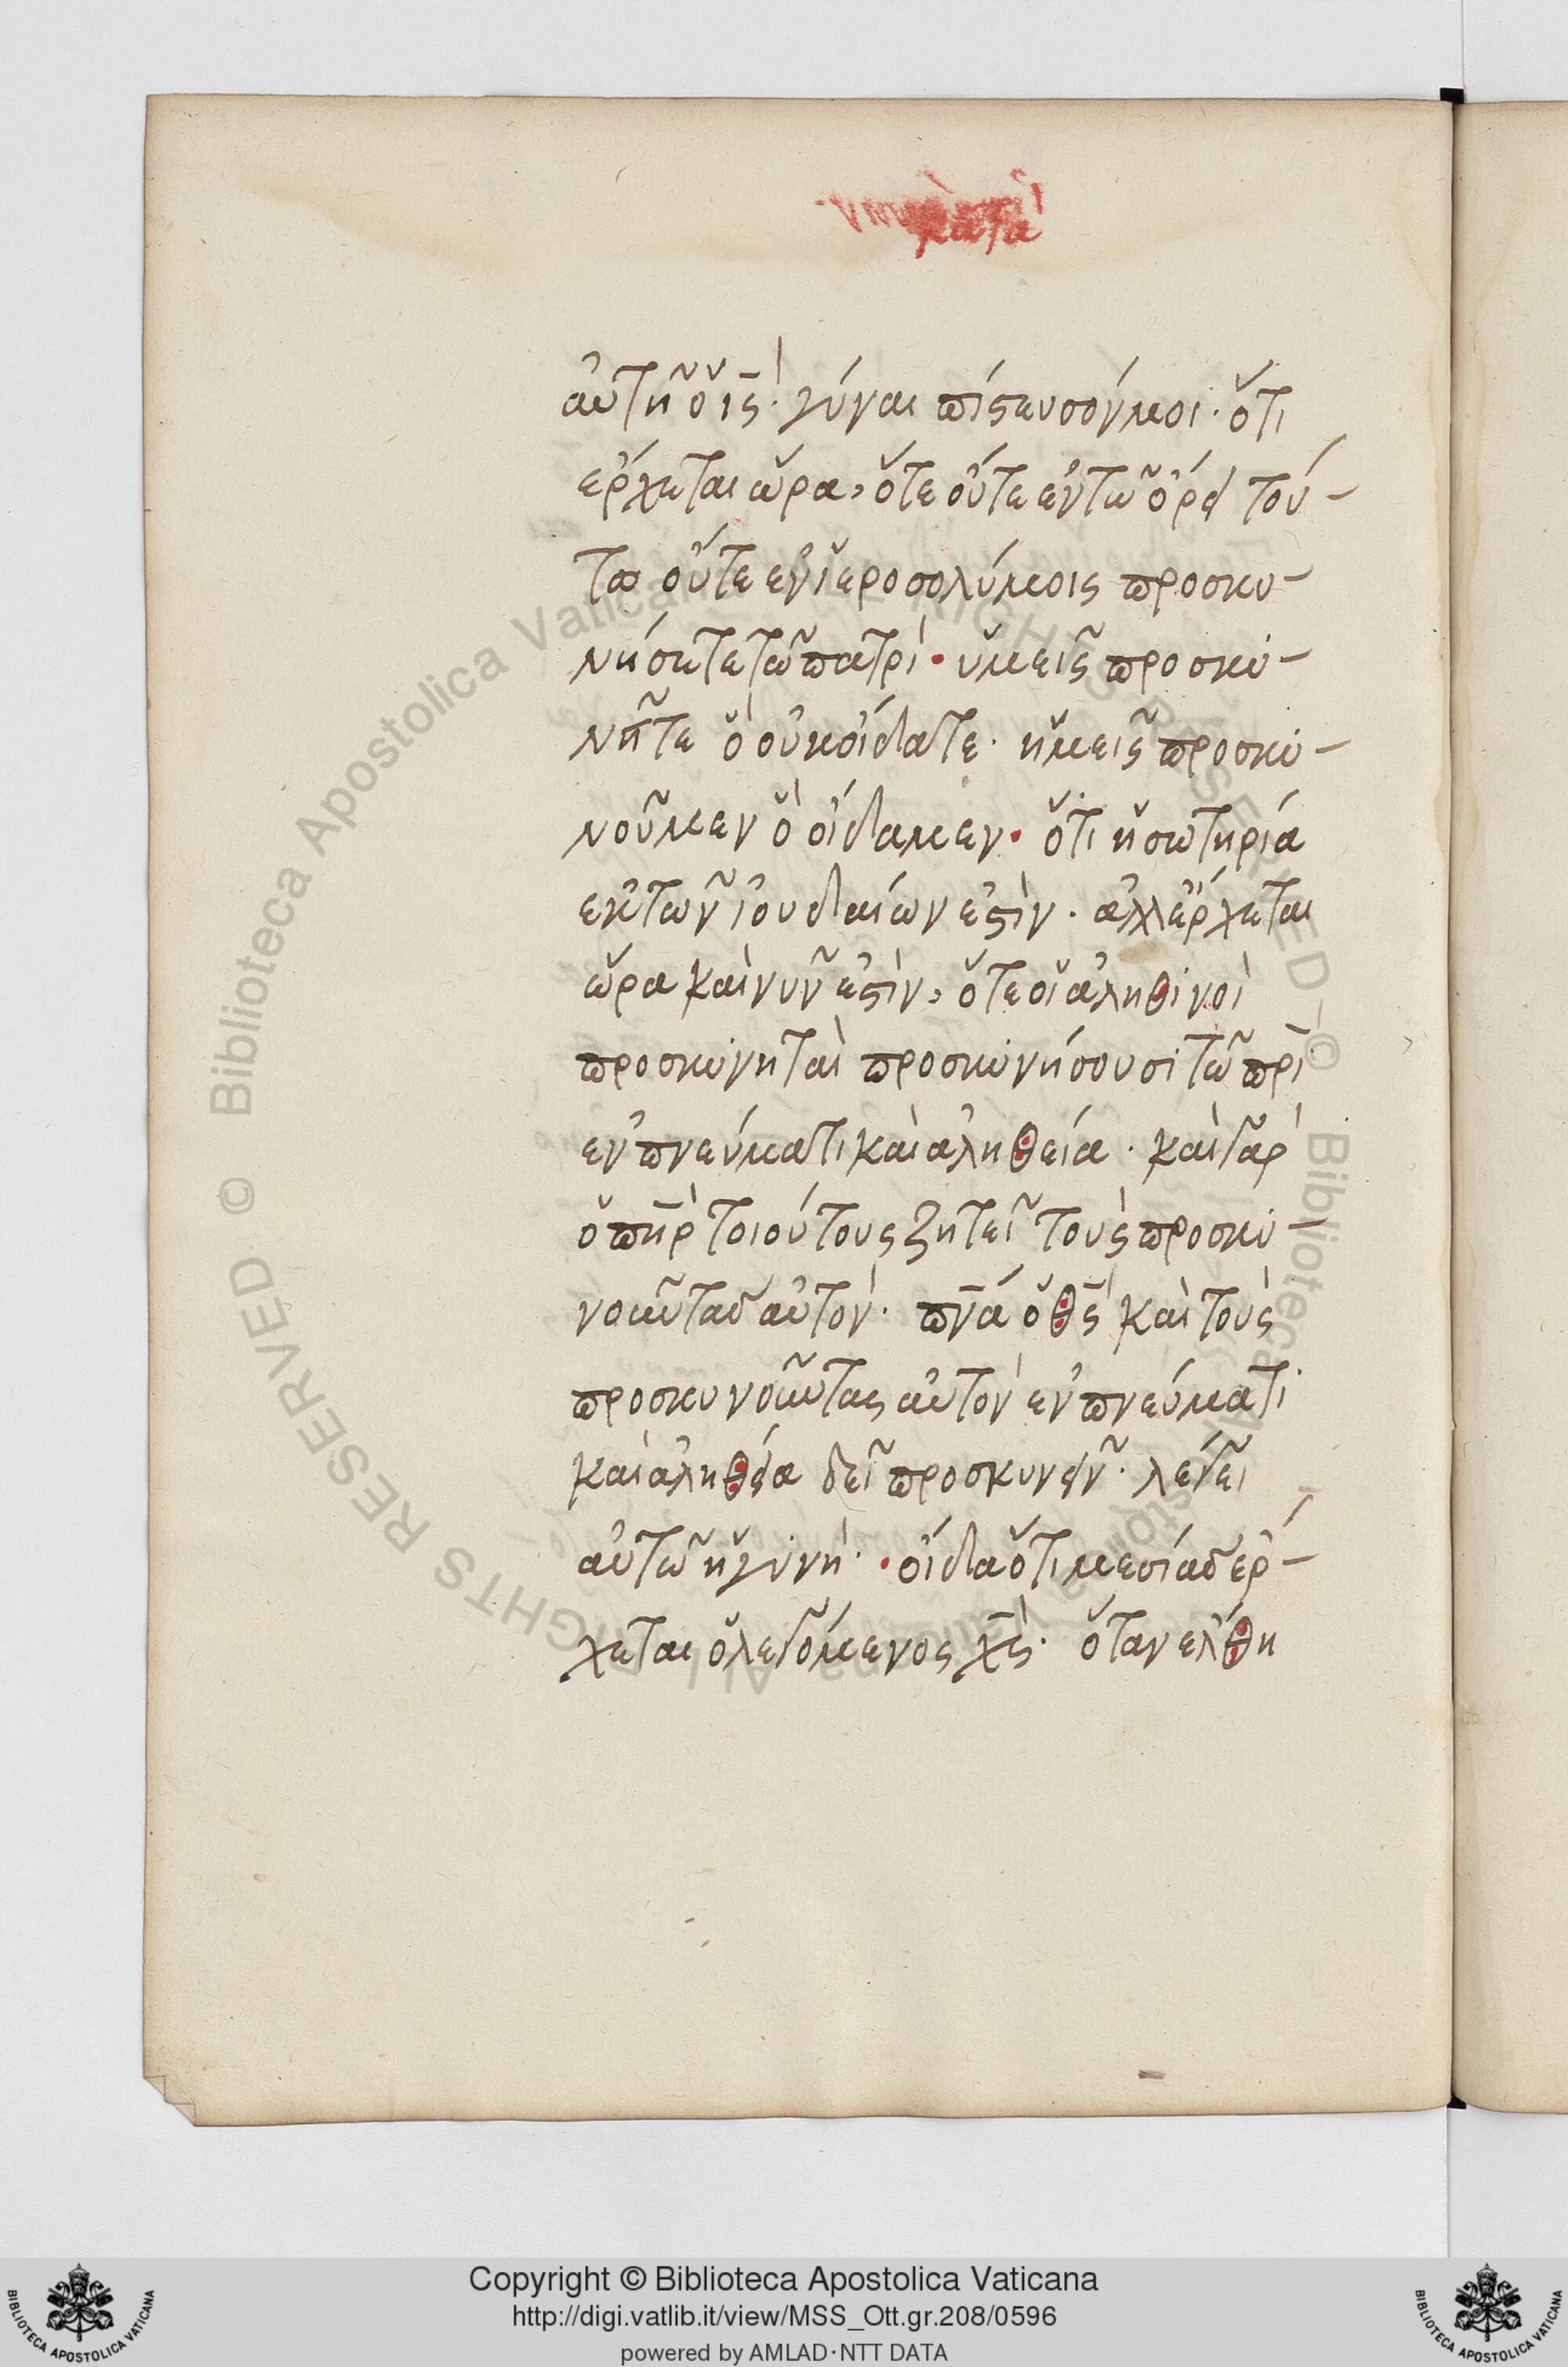 κατὰ
αὐτῆ ὁ ι̅ς̅· γύναι πίστευσόν μοι· ὅτι
ἐρχεται ὥρα, ὅτε οὔτε ἐν τῶ ὄρει τού-
τω οὔτε ἐν ἱεροσολύμοις προσκυ-
νήσητε τῶ πατρί· ὑμεῖς προσκυ-
νῆτε ὃ οὐκ οἴδατε· ἡμεῖς προσκυ-
νοῦμεν ὃ οἴδαμεν· ὅτι ἡ σωτηρία
ἐκ τῶν ἰουδαίων ἐστὶν· ἀλλ ἔρχεται
ὥρα καὶ νῦν ἐστὶν, ὅτε οἱ ἀληθινοὶ
προσκυνηταὶ προσκυνήσουσι τῶ π̅ρ̅ι̅
ἐν πνεύματι καὶ ἀληθεία· καὶ γὰρ
ὁ π̅η̅ρ̅ τοιούτους ζητεῖ τοὺς προσκυ-
νοῦντας αὐτὸν· π̅ν̅α̅ ὁ θ̅ς̅ καὶ τοὺς
προσκυνοῦντας αὐτὸν ἐν πνεύματι
καὶ ἀληθεία δεῖ προσκυνεῖν· λέγει
αὐτῶ ἡ γυνὴ· οἶδα ὅτι μεσίας ἔρ-
χεται ὁ λεγόμενος χ̅ς̅· ὅταν ἔλθη
Copyright © Biblioteca Apostolica Vaticana
http://digi.vatlib.it/view/MSS_Ott.gr.208/0596
powered by AMLAD·NTT DATA
BIBLIOTECA APOSTOLICA VATICANA
BIBLIOTECA APOSTOLICA VATICANA
© Biblioteca Apostolica Vaticana ALL RIGHTS RESERVED